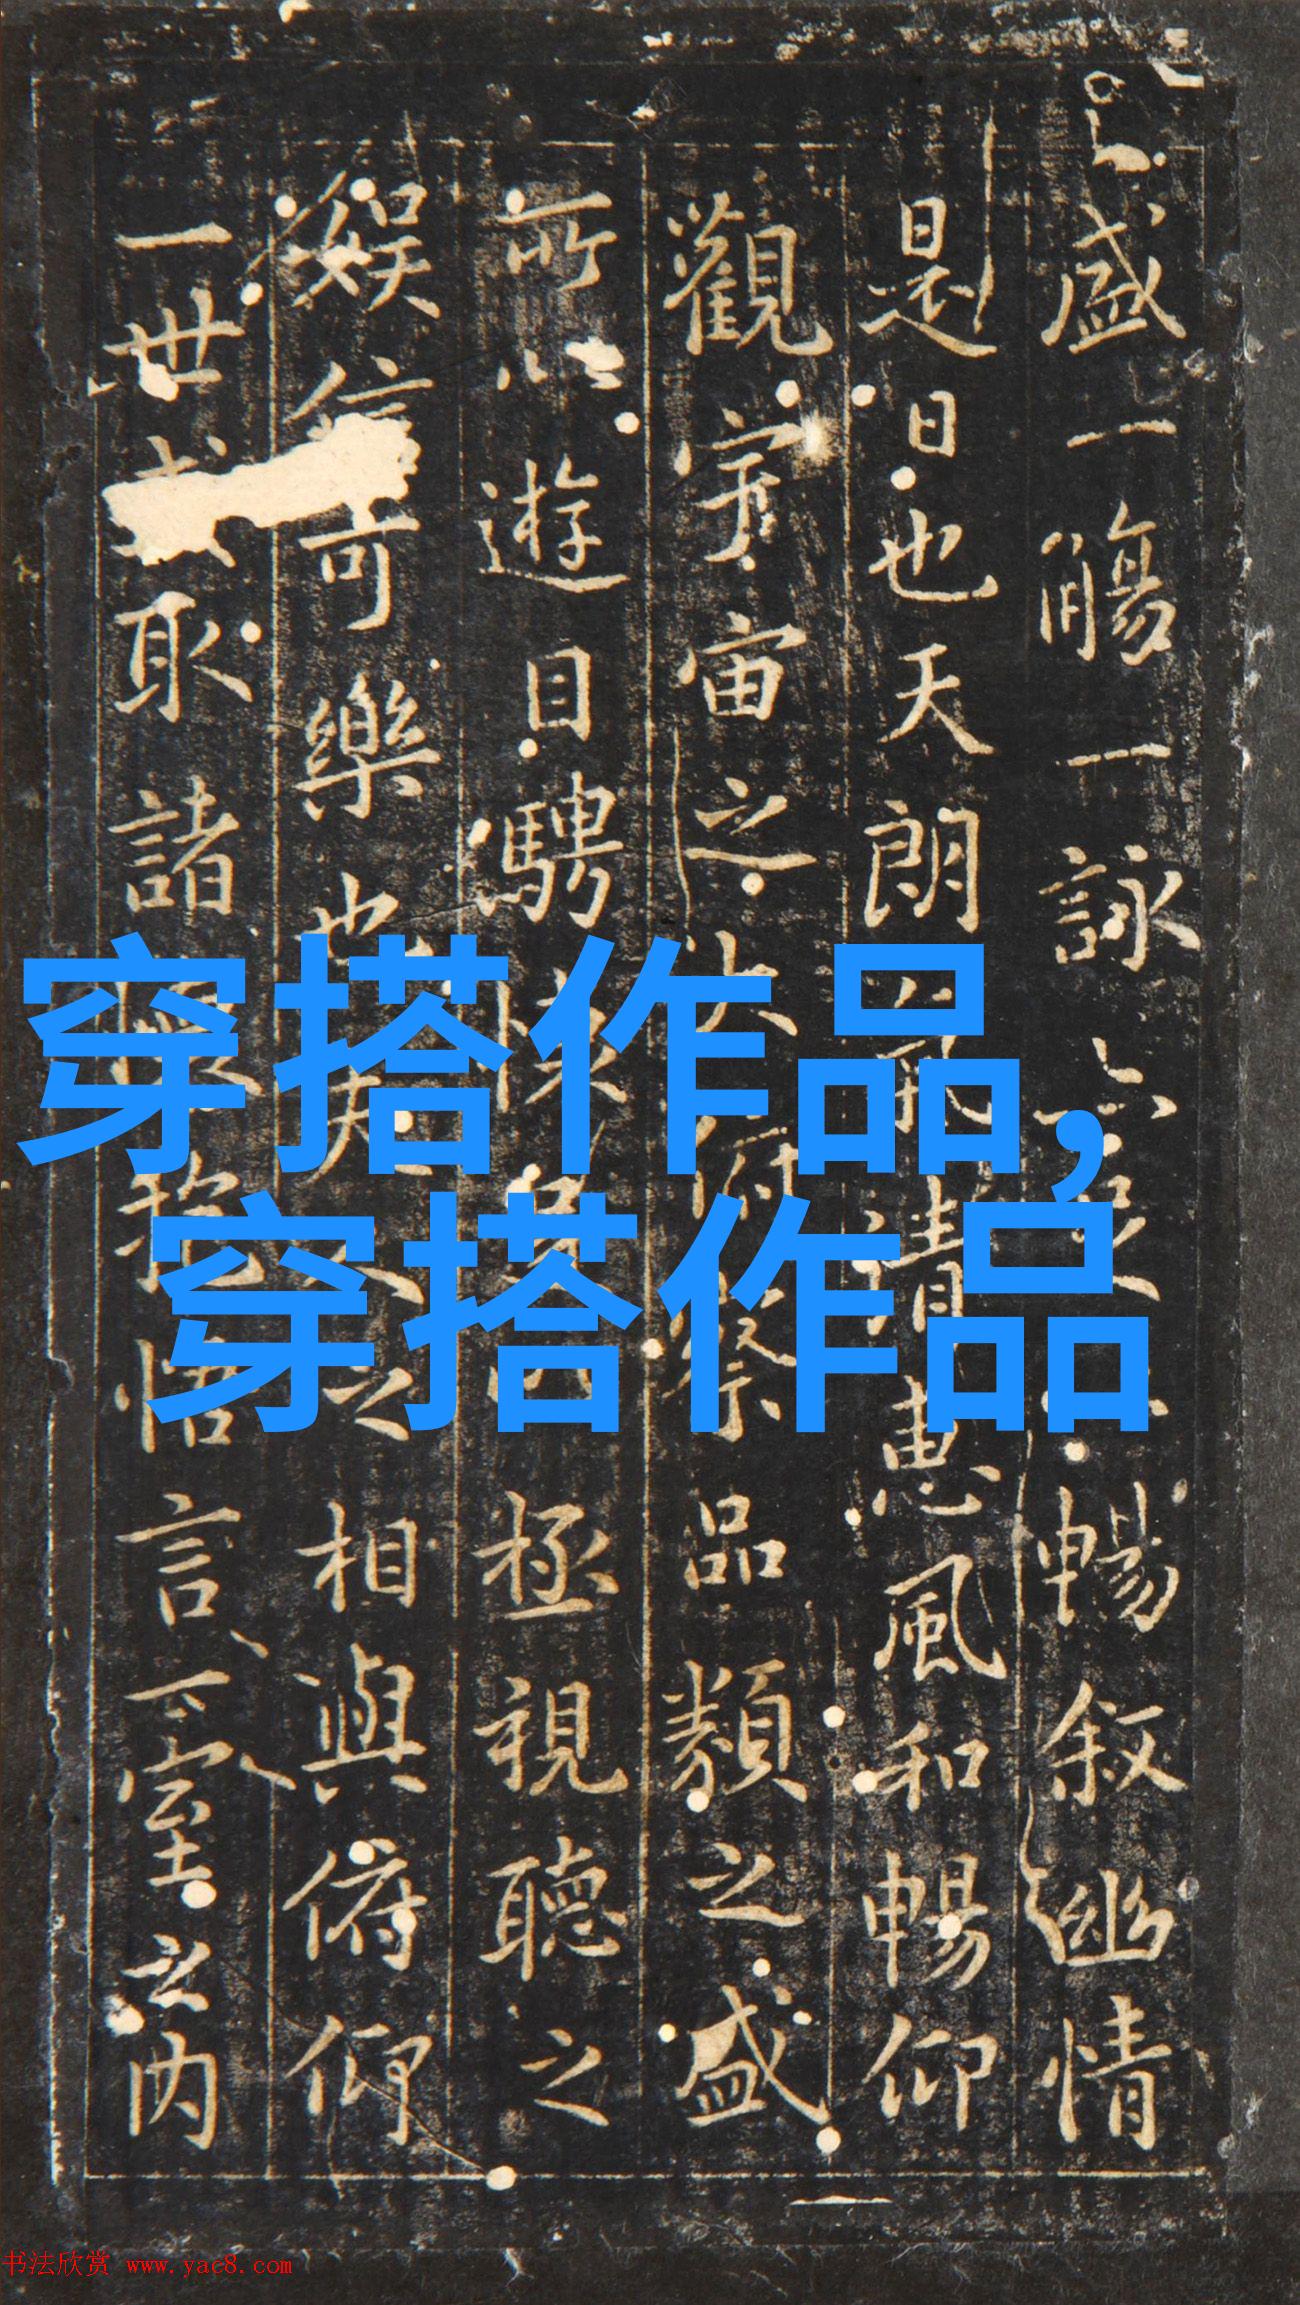 穿搭作品,
穿搭作品
盛一觴一詠亦暢叙幽情
是日也天朗氣清惠風和暢仰
觀宇宙之大俯察品類之盛
所以遊目騁懷足以極視聽之
娛信可樂也夫人之相與俯仰
一世或取諸懷抱悟言一室之内
书法欣赏 www.yac8.com